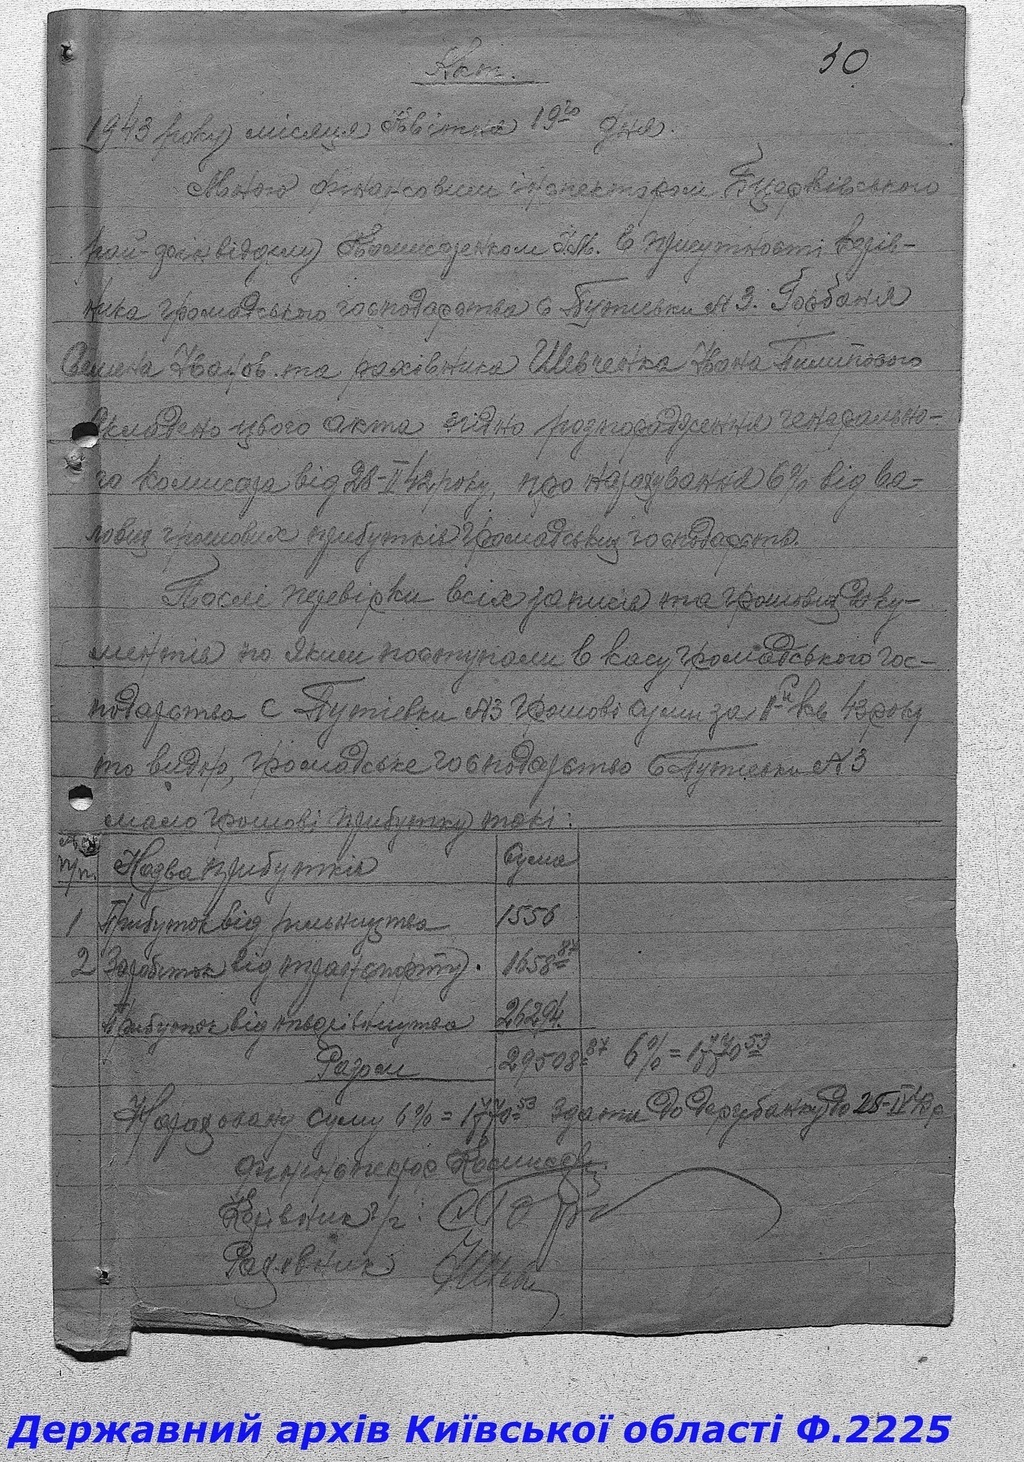 Акт.
50
1943 року місяця Квітня 19го дня.
Мною фінансовим інспектором Бцерквівського
рай-фінвідділу в присутності керів-
ника громадського господарства с Путіевки №3. Горбаня
Семена та рахівника Шевченка Івана Пилипового
складено цього акта згідно розпорядження генерально-
го комисара від 28-II 42 року, про нарахування 6% від ва-
лових грошових прибутків громадських господарств.
Послі перевірки всіх записів та грошових доку-
ментів по яким поступали в касу громадського гос-
подарства с Путіевки №3 грошові суми за кв 43 року
то видно, громадське господарство с Путіевки №3
мало грошові прибутки такі:
№№ п/п. Назва прибутків Сума
1 Прибуток від рільництва 1556
2 Заробіток від транспорту. 1658 87
Прибуток від тваринництва 26294.
Разом 29508 87 6% = 1770 53
Нараховану суму 6% = 1770 53 здати до держбанку до 25-IV 43 р
фінінспектор
Керівник г/г:
Рахівник
Державний архів Київської області Ф.2225